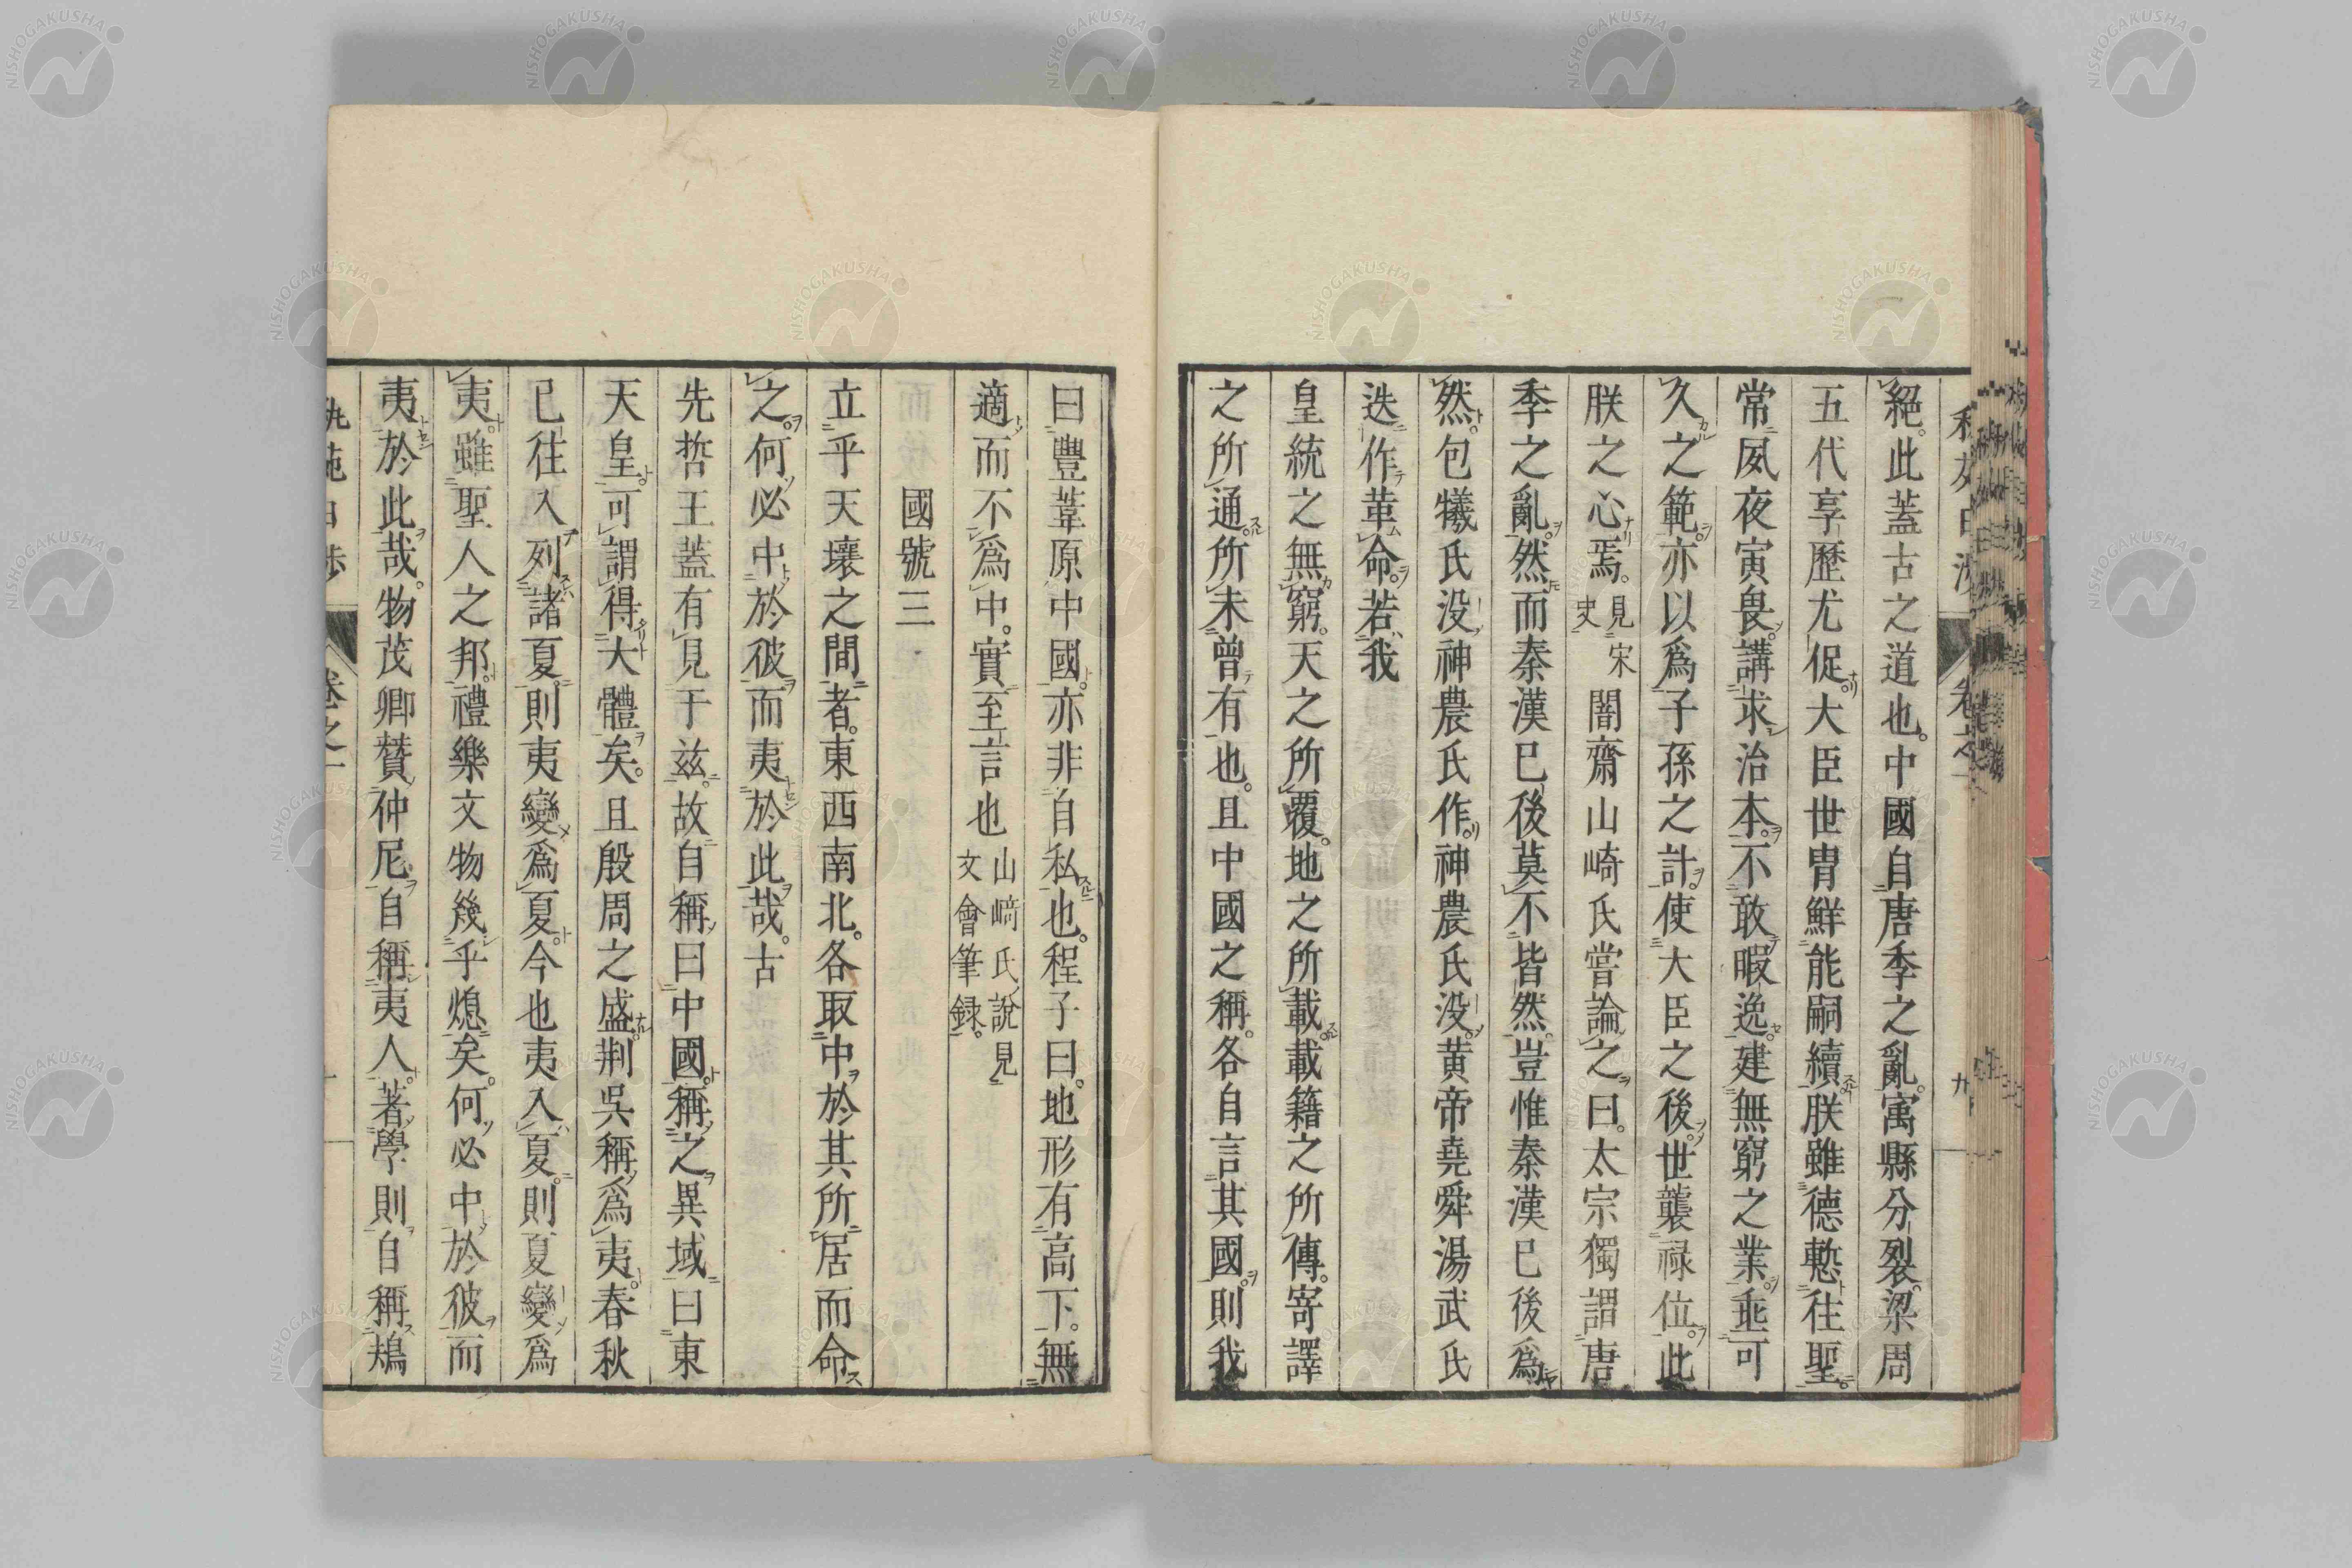 絕此蓋古之道也。中國自唐季之亂。寓縣分裂。梁周
五代享歷尤促。大臣世胄鮮能嗣續。朕雖德慙往聖。
常夙夜寅畏。講求治本。不敢暇逸。建無窮之業。垂可
久之範。亦以爲子孫之計。使大臣之後。世襲祿位。此
朕之心焉。見宋史闇齋山崎氏嘗論之曰。太宗獨謂唐
季之亂。然而秦漢已後莫不皆然。豈惟秦漢已後爲
然。包犧氏没。神農氏作。神農氏没。黄帝堯舜湯武氏
迭作革命。若我
皇統之無窮。天之所覆。地之所載。載籍之所傳。寄譯
之所通。所未曾有也。且中國之稱。各自言其國。則我
卷之一
九
曰豐葦原中國。亦非自私也。程子曰。地形有高下。無
適而不爲中。實至言也山﨑氏說見文會筆録。
國號三
立乎天壤之間者。東西南北。各取中於其所居而命
之。何必中於彼。而夷於此哉。古
先哲王蓋有見于兹。故自稱曰中國。稱之異域曰東
天皇。可謂得大體矣。且殷周之盛。荆吳稱爲夷。春秋
已往入列諸夏。則夷變爲夏。今也夷入夏。則夏變爲
夷。雖聖人之邦。禮樂文物幾乎熄矣。何必中於彼。而
夷於此哉。物茂卿贊仲尼。自稱夷人。著學則自稱鴂
卷之一